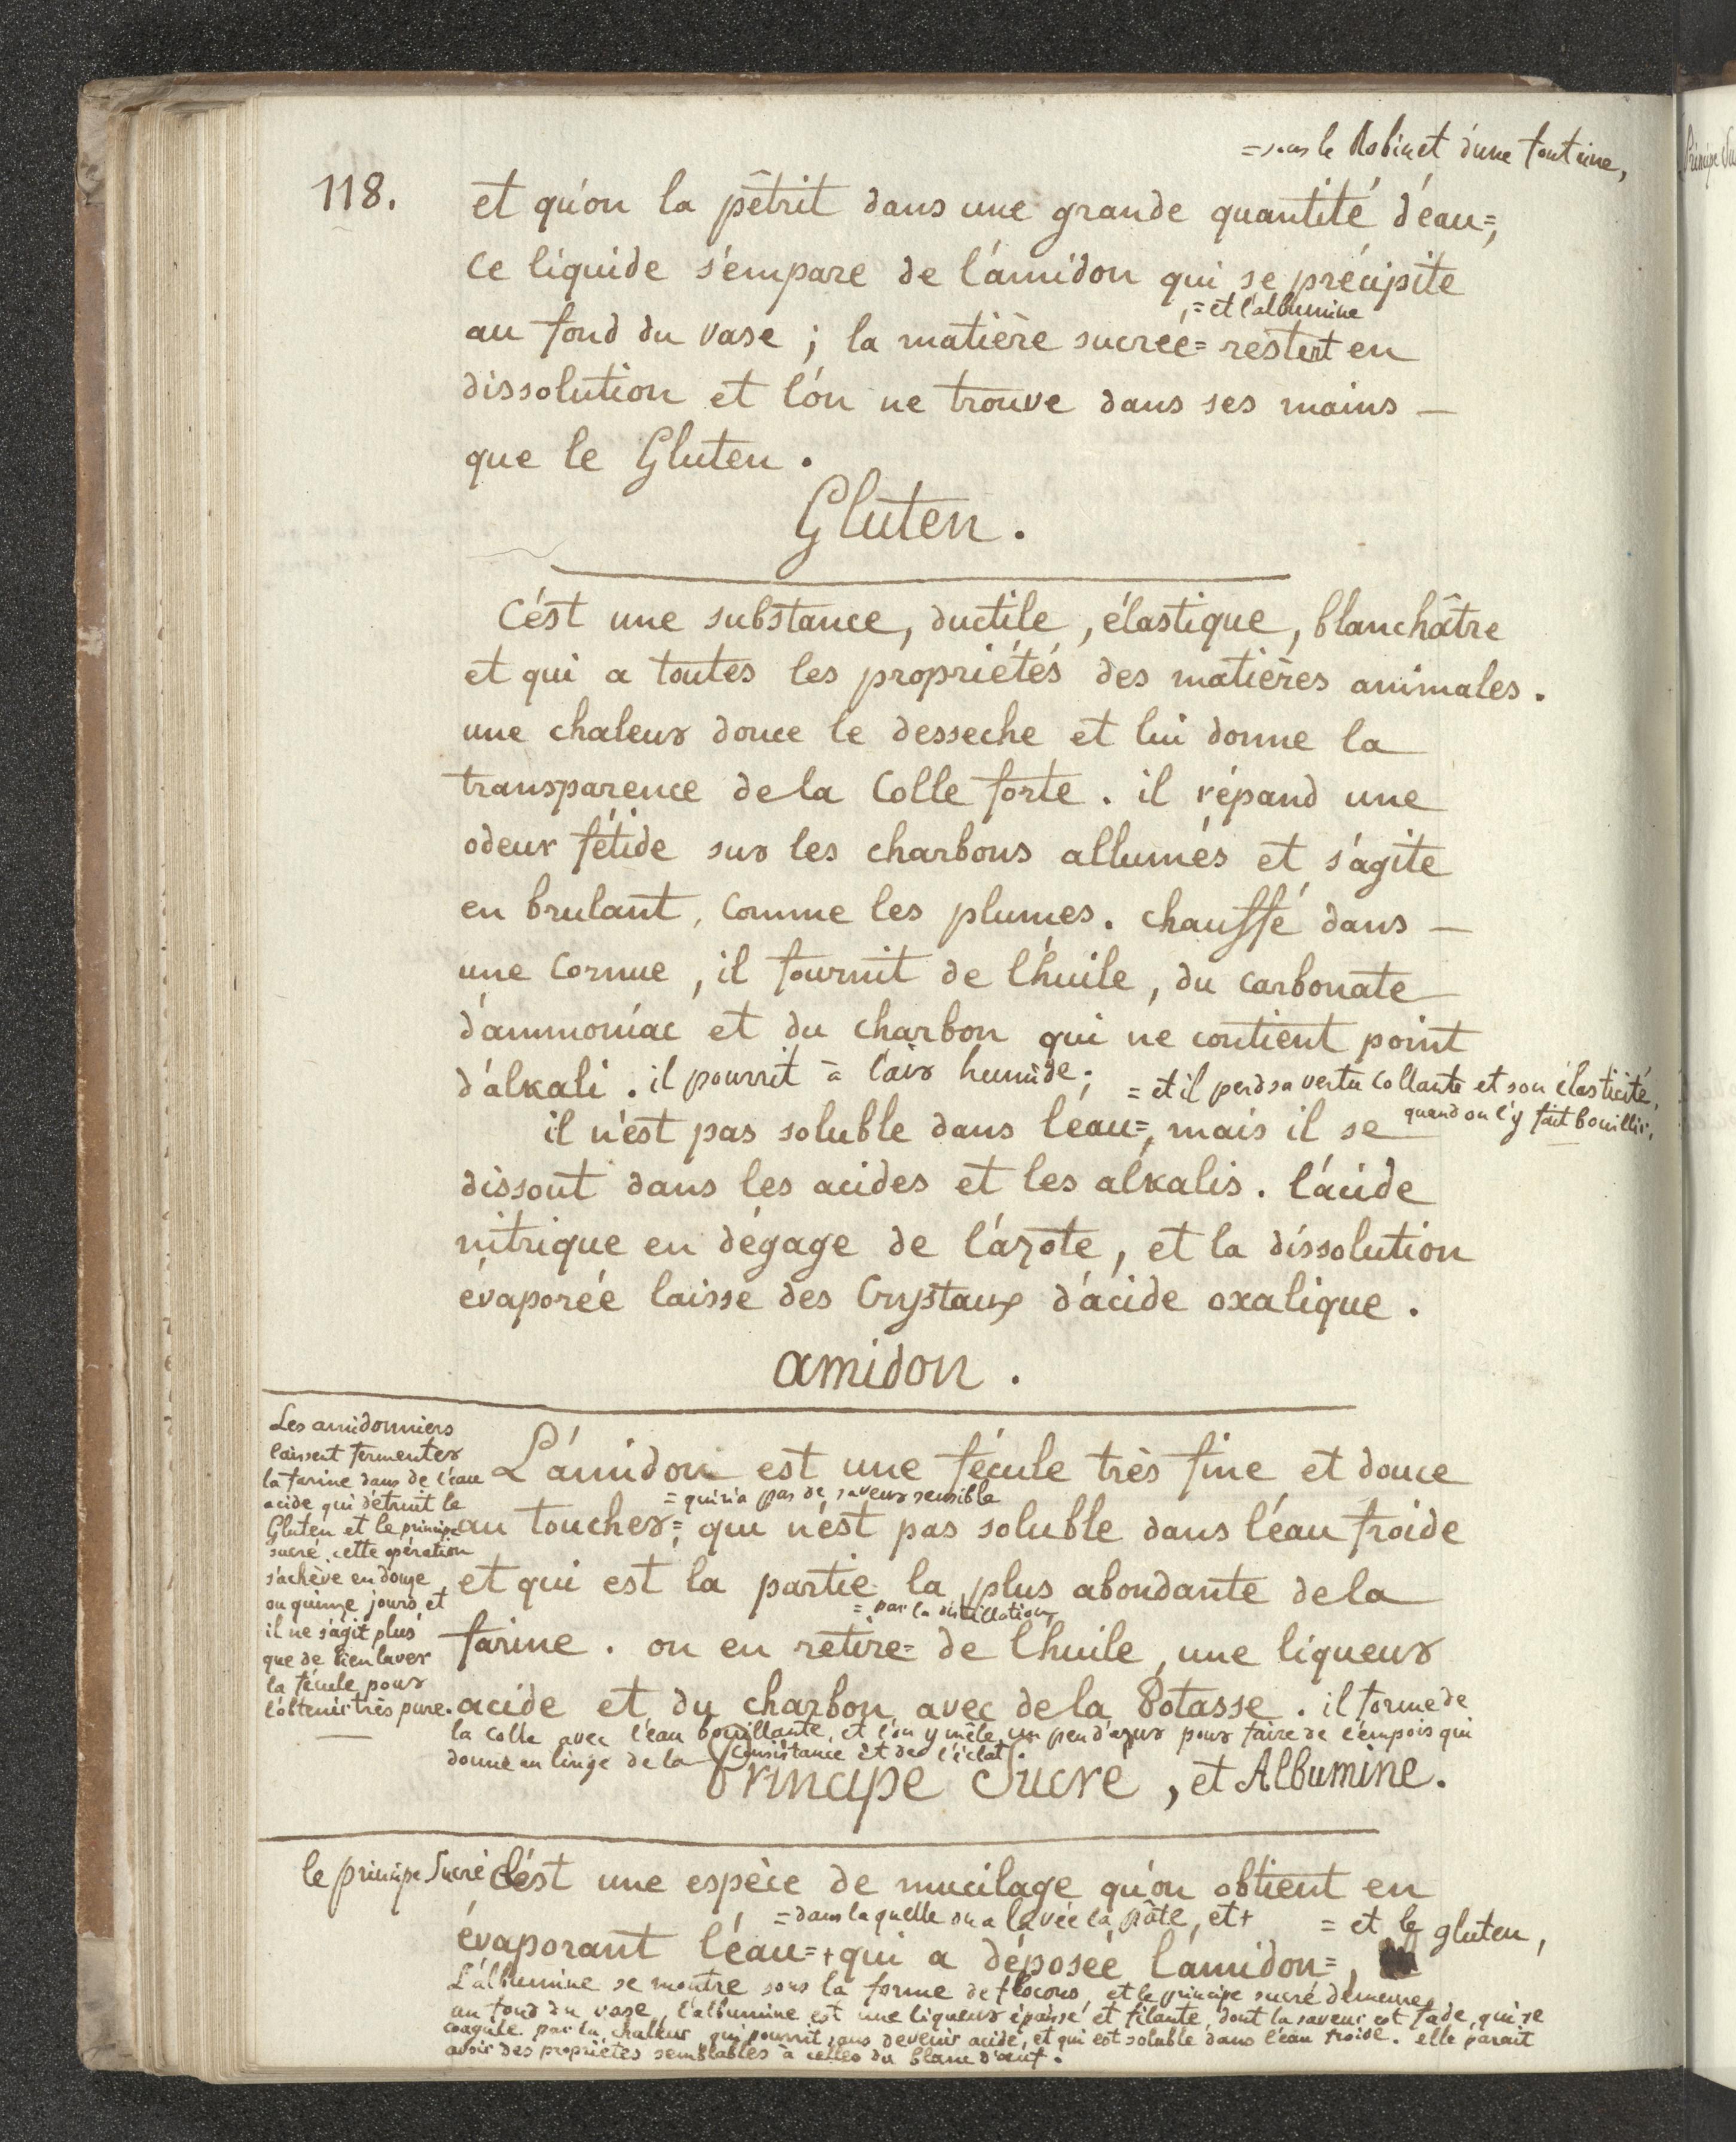 = sous le Robinet d'une fontaine,
118.
et qu'on la pêtrit dans une grande quantité d'eau=,
Ce liquide s'empare de l'amidon qui se précipite
,= et l'albumine
au fond du vase ; la matière sucrée= restent en
dissolution et l'on ne trouve dans ses mains —
que le Gluten.
Gluten.
C'est une substance, ductile, élastique, blanchâtre
et qui a toutes les propriétés des matières animales.
une chaleur douce le desseche et lui donne la
transparence de la Colle forte. il répand une
odeur fétide sur les charbons allumés et s'agite
en brulant, Comme les plumes. chauffé dans —
une Cornue, il fournit de l'huile, du carbonate
d'ammoniac et du charbon qui ne contient point
d'alkali. il pourrit à l'air humide;
= et il perd sa vertu collante et son élasticité,
quand on l'y fait bouillir,
il n'est pas soluble dans l'eau=, mais il se
dissout dans les acides et les alkalis. l'acide
nitrique en dégage de l'azote, et la dissolution
évaporée laisse des Crystaux d'acide oxalique.
amidon.
Les amidonniers
laissent fermenter
la farine dans de l'eau
acide qui détruit le
Gluten et le principe
sucré. cette opération
s'achève en douze
ou quinze jours et
il ne s'agit plus
que de bien laver
la fécule pour
l'obtenir très pure.
L'amidon est une fécule très fine et douce
= qui n'a pas de saveur sensible
au toucher=; qui n'est pas soluble dans l'eau froide
et qui est la partie la plus abondante de la
= par la distillation
farine. on en retire= de l'huile, une liqueur
acide et du charbon avec de la Potasse. il forme de
la colle avec l'eau bouillante, et l'on y mêle un peu d'azur pour faire de l'empois qui
donne au linge de la consistance et de l'éclat.
Principe Sucré, et Albumine.
le principe Sucré
C'est une espèce de mucilage qu'on obtient en
= dans laquelle on a lavée la pâte, et+
= et le gluten,
évaporant l'eau=+ qui a déposée l'amidon=,
L'albumine se montre sous la forme de flocons, et le principe sucré demeure
au fond du vase, l'albumine est une liqueur épaisse et filante, dont la saveur est fade, qui se
coagule par la chaleur, qui pourrit sans devenir acide, et qui est soluble dans l'eau froide. elle parait
avoir des propriétés semblables à celles du blanc d'œuf.